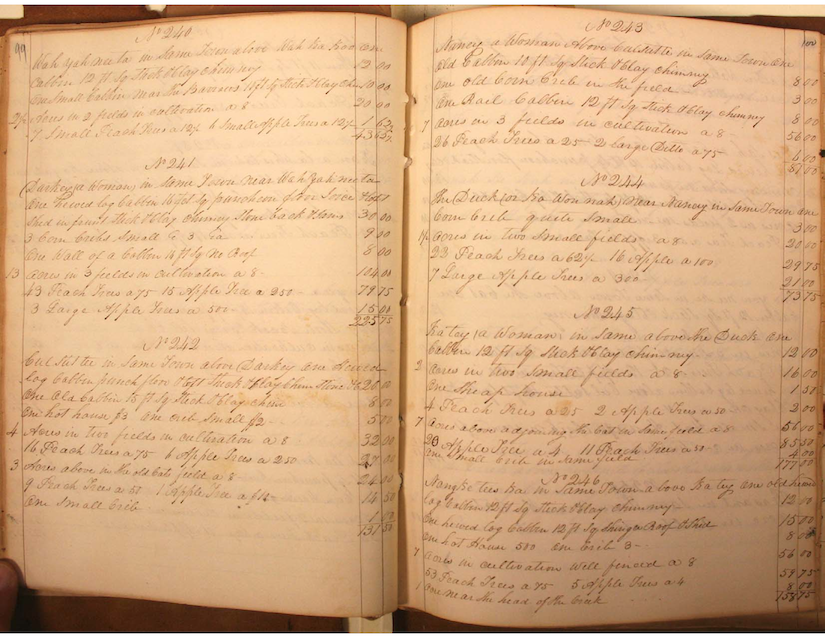 99
No 240
Wah yah neeta in Same Town above Wah Ka Koo one
Cabbin 12 ft Sq Stick & Clay Chimny 12 00
One Small Cabbin near the 10 ft Sq Stick & Clay Chim 10 00
2½ Acres in 2 fields in cultivation a 8 20 00
7 Small Peach Trees a 12½ 6 Small Apple Trees a 12½ 1 62½
43 62½
No 241
(Darkey, a Woman) in Same Town near Wah yah neeta
One hewed log Cabbin 16 ft Sq puncheon floor Joice & loft
Shed in front Stick & Clay Chimny Stone back & 30 00
3 Corn Cribs Small @ 3 Ea 9 00
One Wall of a Cabbin 15 ft Sq No Roof 8 00
13 Acres in 3 fields in cultivation a 8 104 00
43 Peach Trees a 75 15 Apple Tree a 250 79 75
3 Large Apple Trees a 500 15 00
225 75
No 242
Culstittee in Same Town above Darkey one Hewed
log Cabbin punch floor & loft Stick & Clay Chim 20 00
One Old Cabbin 15 ft Sq Stick & Clay Chim 8 00
One hot house $3 One Crib Small $2 5 00
4 Acres in two fields in cultivation a 8 32 00
16 Peach Trees a 75 6 Apple Trees a 250 27 00
3 Acres above in the field a 8 24 00
9 Peach Trees a 50 1 Apple Tree a $10 14 50
One Small Crib 1 00
131 50
100
No 243
Nancy a Woman Above Culstittee in Same Town One
Old Cabbin 10 ft Sq Stick & Clay Chimny 8 00
One Old Corn Crib in the field 3 00
One Rail Cabbin 12 ft Sq Stick & Clay Chimny 8 00
7 Acres in 3 fields in cultivation a 8 56 00
26 Peach Trees a 25 2 Large Ditto a 75
No 244
The Duck (or Ka Won nah) Near Nancy in Same Town One
Corn Crib quite Small 3 00
Acres in two Small fields a 8 20 00
22 Peach Trees a 62½ 16 Apple a 100 29 75
7 Large Apple Trees a 300 21 00
73 75
No 245
Katey (a Woman) in Same above the Duck One
Cabbin 12 ft Sq Stick & Clay Chimny 12 00
2 Acres in two Small fields a 8 16 00
One Sheap house 1 50
4 Peach Trees a 25 2 Apple Trees a 50 2 00
7 Acres above adjoining the in Same field a 8 56 00
20 Apple Tree a 4 11 Peach Trees a 50 85 50
One Small Crib in Same field 4 00
177 00
No 246
in Same Town above Katey One old hewed
log Cabbin 12 ft Sq Stick & Clay Chimney 12 00
One hewed log Cabbin 12 ft Sq Shingle Roof & Shed 15 00
One hot House 500 One Crib 3 8 00
7 Acres in cultivation well fenced a 8 56 00
53 Peach Trees a 75 5 Apple Trees a 4 59 75
1 One near the head of the Creek 8 00
158 75